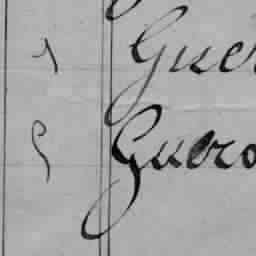 Guer
Guero